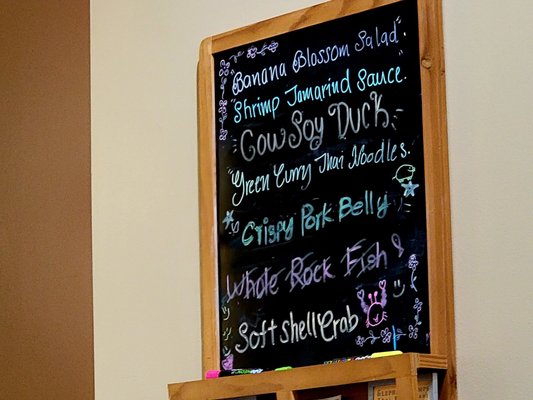 "Banana Blossom Salad".
"Shrimp Tamarind Sauce".
"Cow Soy Duck"
"Green Curry Thai Noodles.
Crispy Pork Belly
Whole Rock Fish
Soft shell Crab